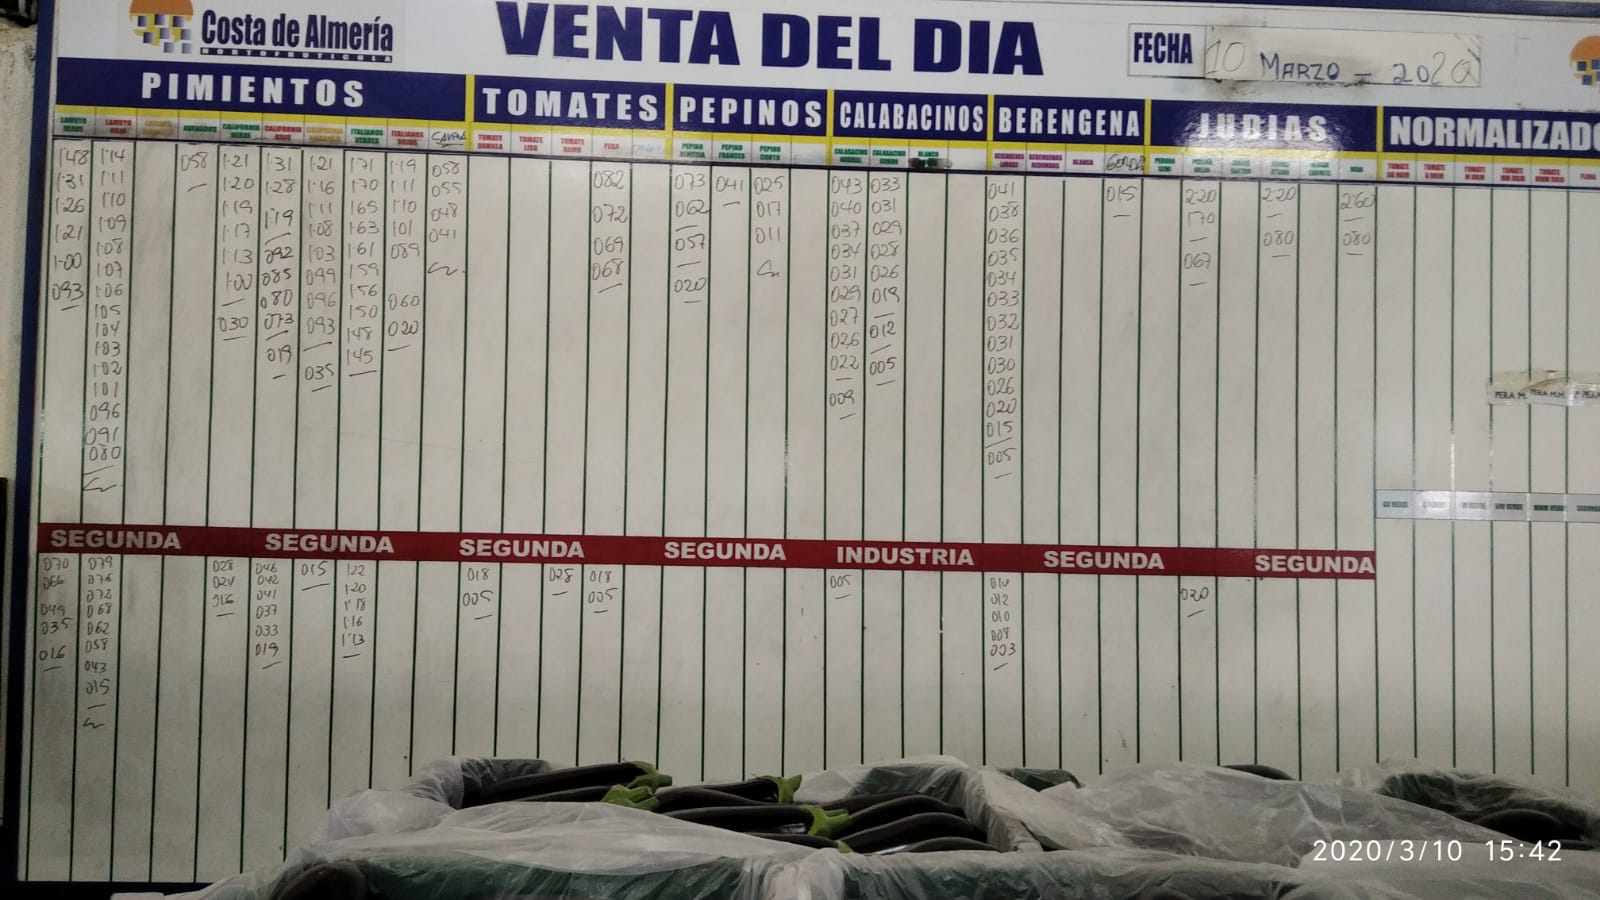 Costa de Almería
HORTOFRUTICOLA
VENTA DEL DIA
FECHA 10 MARZO - 2020
PIMIENTOS
TOMATES
PEPINOS
CALABACINOS
BERENGENA
JUDIAS
NORMALIZADO
LAMUYO ROJO
CALIFORNIA VERDE
CALIFORNIA ROJO
ITALIANOS VERDES
ITALIANOS ROJOS
TOMATE DANIELA
TOMATE LISO
TOMATE RAMA
PERA
PEPINO ALMERIA
PEPINO FRANCES
PEPINO CORTO
CALABACINO NORMAL
CALABACINO GORDO
BLANCO
BERENGENAS LARGAS
BERENGENAS REDONDAS
BLANCA
GORDA
1'48
1'31
1'26
1'21
1'00
093
1'14
1'11
1'10
1'09
1'08
1'07
1'06
1'05
1'04
1'03
1'02
1'01
096
091
080
058
1'21
1'20
1'19
1'17
1'13
1'00
030
1'31
1'28
1'19
092
085
080
073
019
1'21
1'16
1'11
1'08
1'03
099
096
093
035
1'71
1'70
1'65
1'63
1'61
1'59
1'56
1'50
1'48
1'45
1'19
1'11
1'10
1'01
089
060
020
058
055
048
041
082
072
069
068
073
062
057
020
041
025
017
011
043
040
037
034
031
029
027
026
022
009
033
031
029
028
026
019
012
005
041
038
036
035
034
033
032
031
030
026
020
015
005
015
2'20
1'70
067
2'20
080
2'60
080
PERA M.
SEGUNDA
SEGUNDA
SEGUNDA
SEGUNDA
INDUSTRIA
SEGUNDA
SEGUNDA
070
066
049
035
016
079
076
072
068
062
058
043
015
028
024
016
046
042
041
037
033
019
015
1'22
1'20
1'18
1'16
1'13
018
005
028
018
005
005
014
012
010
008
003
020
2020/3/10 15:42